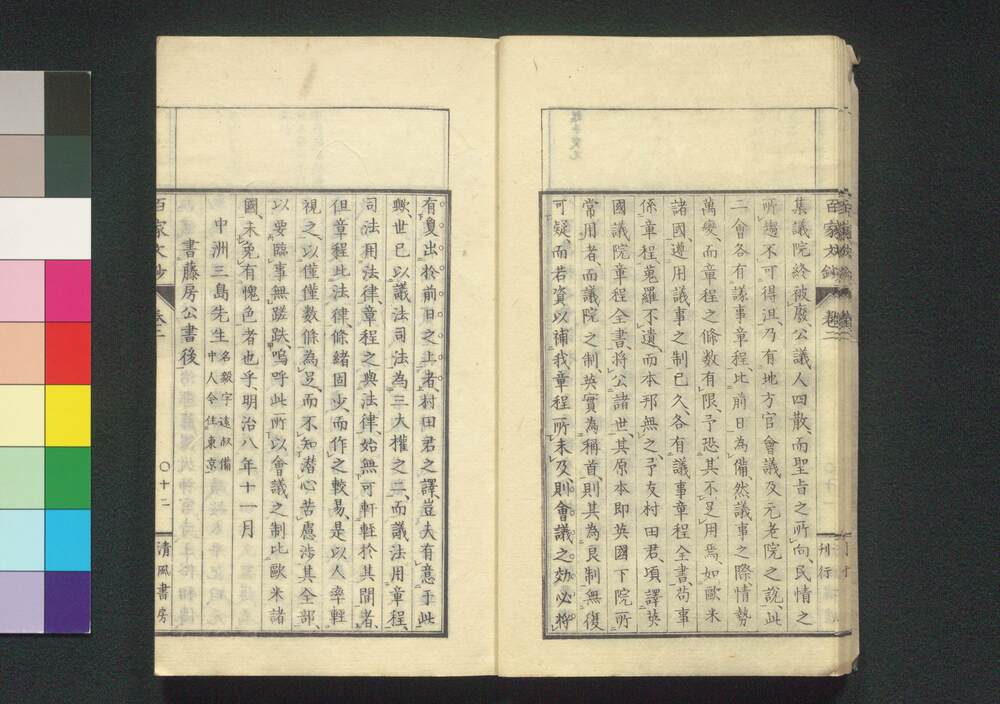 集議院終被廢公議人四散而聖旨之所向民情之
所趨不可得沮乃有地方官會議及元老院之說此
二會各有議事章程比前日為備然議事之際情勢
萬變而章程之條數有限予恐其不足用焉如歐米
諸國遵用議事之制已久各有議事章程全書苟事
係章程蒐羅不遺而本邦無之予友村田君頃譯英
國議院章程全書將公諸世其原本即英國下院所
常用者而議院之制英實為稱首則其為良制無復
可疑而若資以補我章程所未及則會議之効必將
有夐出於前日之上者村田君之譯豈夫有意于此
歟世已以議法司法為三大權之二而議法用章程
司法用法律章程之與法律始無可軒輊於其間者
但章程此法律條緒固少而作之較易是以人率輕
視之以僅僅數條為足而不知潛心苦慮涉其全部
以要臨事無蹉跌嗚呼此所以會議之制比歐米諸
國未免有愧色者也乎明治八年十一月
中洲三島先生 名毅字遠叔備中人今住東京
書藤房公書後
百家文鈔 卷二 〇十二 清風書房